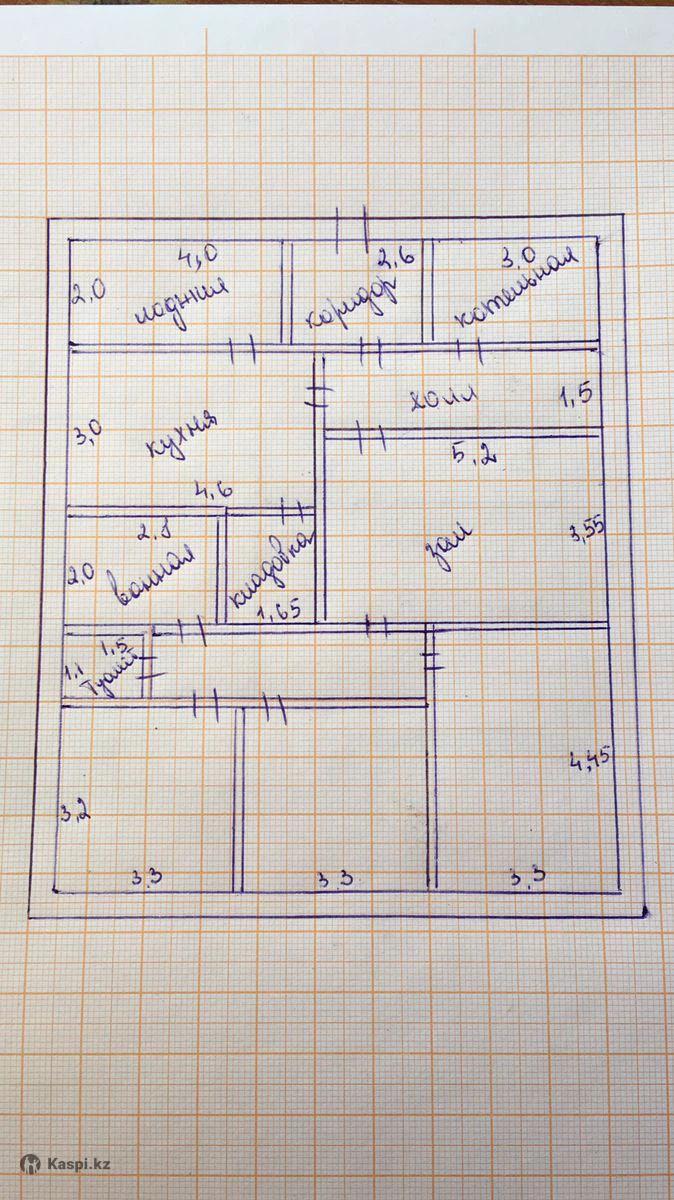 4,0
2,0
лоджия
2,6
коридор
3,0
котельная
холл
1,5
3,0
кухня
4,6
5,2
зал
3,55
2,8
2,0
ванная
кладовка
1,65
1,5
1,1
туалет
3,2
3.3
3.3
3.3
4,45
Kaspi.kz